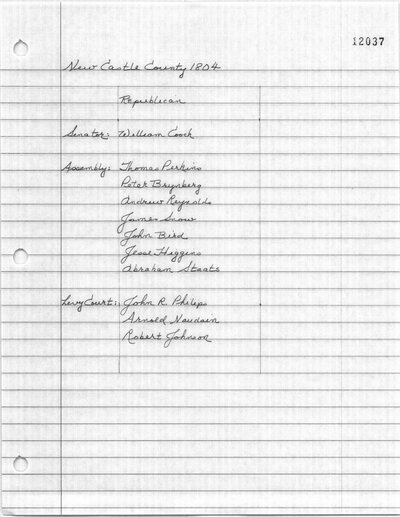 12037
New Castle County 1804
Republican
Senator: William Cook
Assembly: Thomas Perkins
Peter Brynberg
Andrew Reynolds
James Snow
John Bird
Jesse Higgins
Abraham Staats
Levy Court: John R. Philips
Arnold Naudain
Robert Johnson